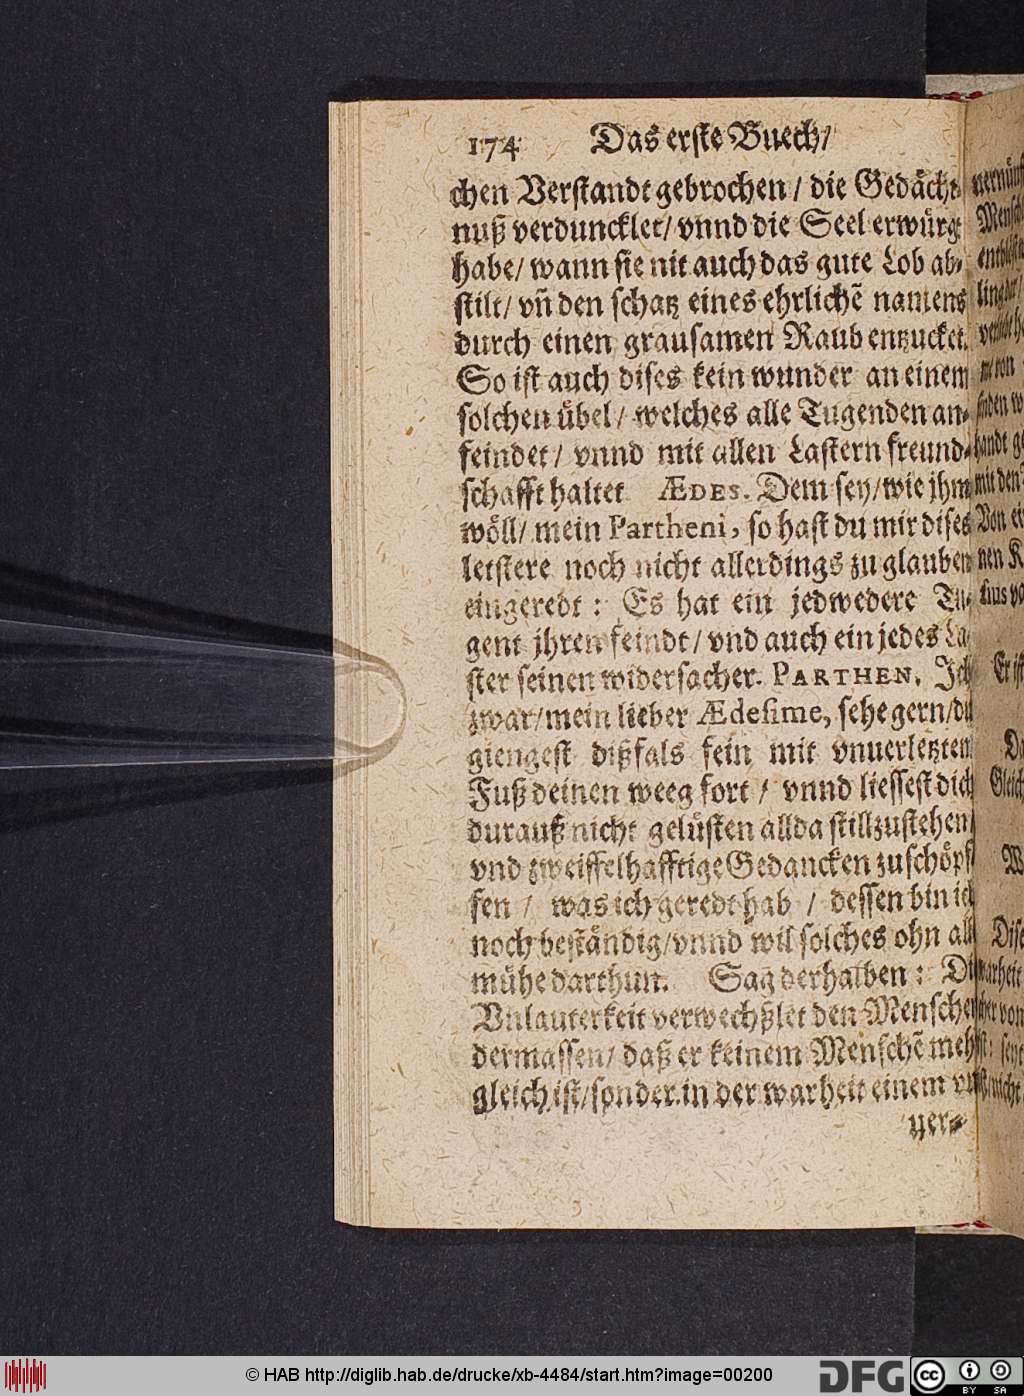 174 Das erste Buech/
chen Verstandt gebrochen / die Gedächt⸗
nuß verduncklet/ vnnd die Seel erwürgt
habe/ wann sie nit auch das gute Lob ab⸗
stilt/ vñ den schatz eines ehrlichẽ namens
durch einen grausamen Raub entzucket.
So ist auch dises kein wunder an einem
solchen übel / welches alle Tugenden an⸗
feindet / vnnd mit allen Lastern freund⸗
schafft haltet ÆDES. Dem sey/wie jhm
wöll/ mein Partheni, so hast du mir dises
letstere noch nicht allerdings zu glauben
eingeredt : Es hat ein jedwedere Tu⸗
gent jhren feindt / vnd auch ein jedes La⸗
ster seinen widersacher. PARTHEN. Ich
zwar/mein lieber Ædesime, sehe gern/du
giengest dißfals fein mit vnuerletzten
Fuß deinen weeg fort / vnnd liessest dich
durauß nicht gelüsten allda stillzustehen/
vnd zweiffelhafftige Gedancken zu schöpf
fen / was ich geredt hab / dessen bin ich
noch beständig/vnnd wil solches ohn all
mühe darthun. Sag derhalben : Di
Vnlauterkeit verwechßlet den Menschen
dermassen/ daß er keinem Menschẽ meh
gleich ist/sonder in der warheit einem vn
uer⸗
© HAB http://diglib.hab.de/drucke/xb-4484/start.htm?image=00200
DFG
cc
BY SA